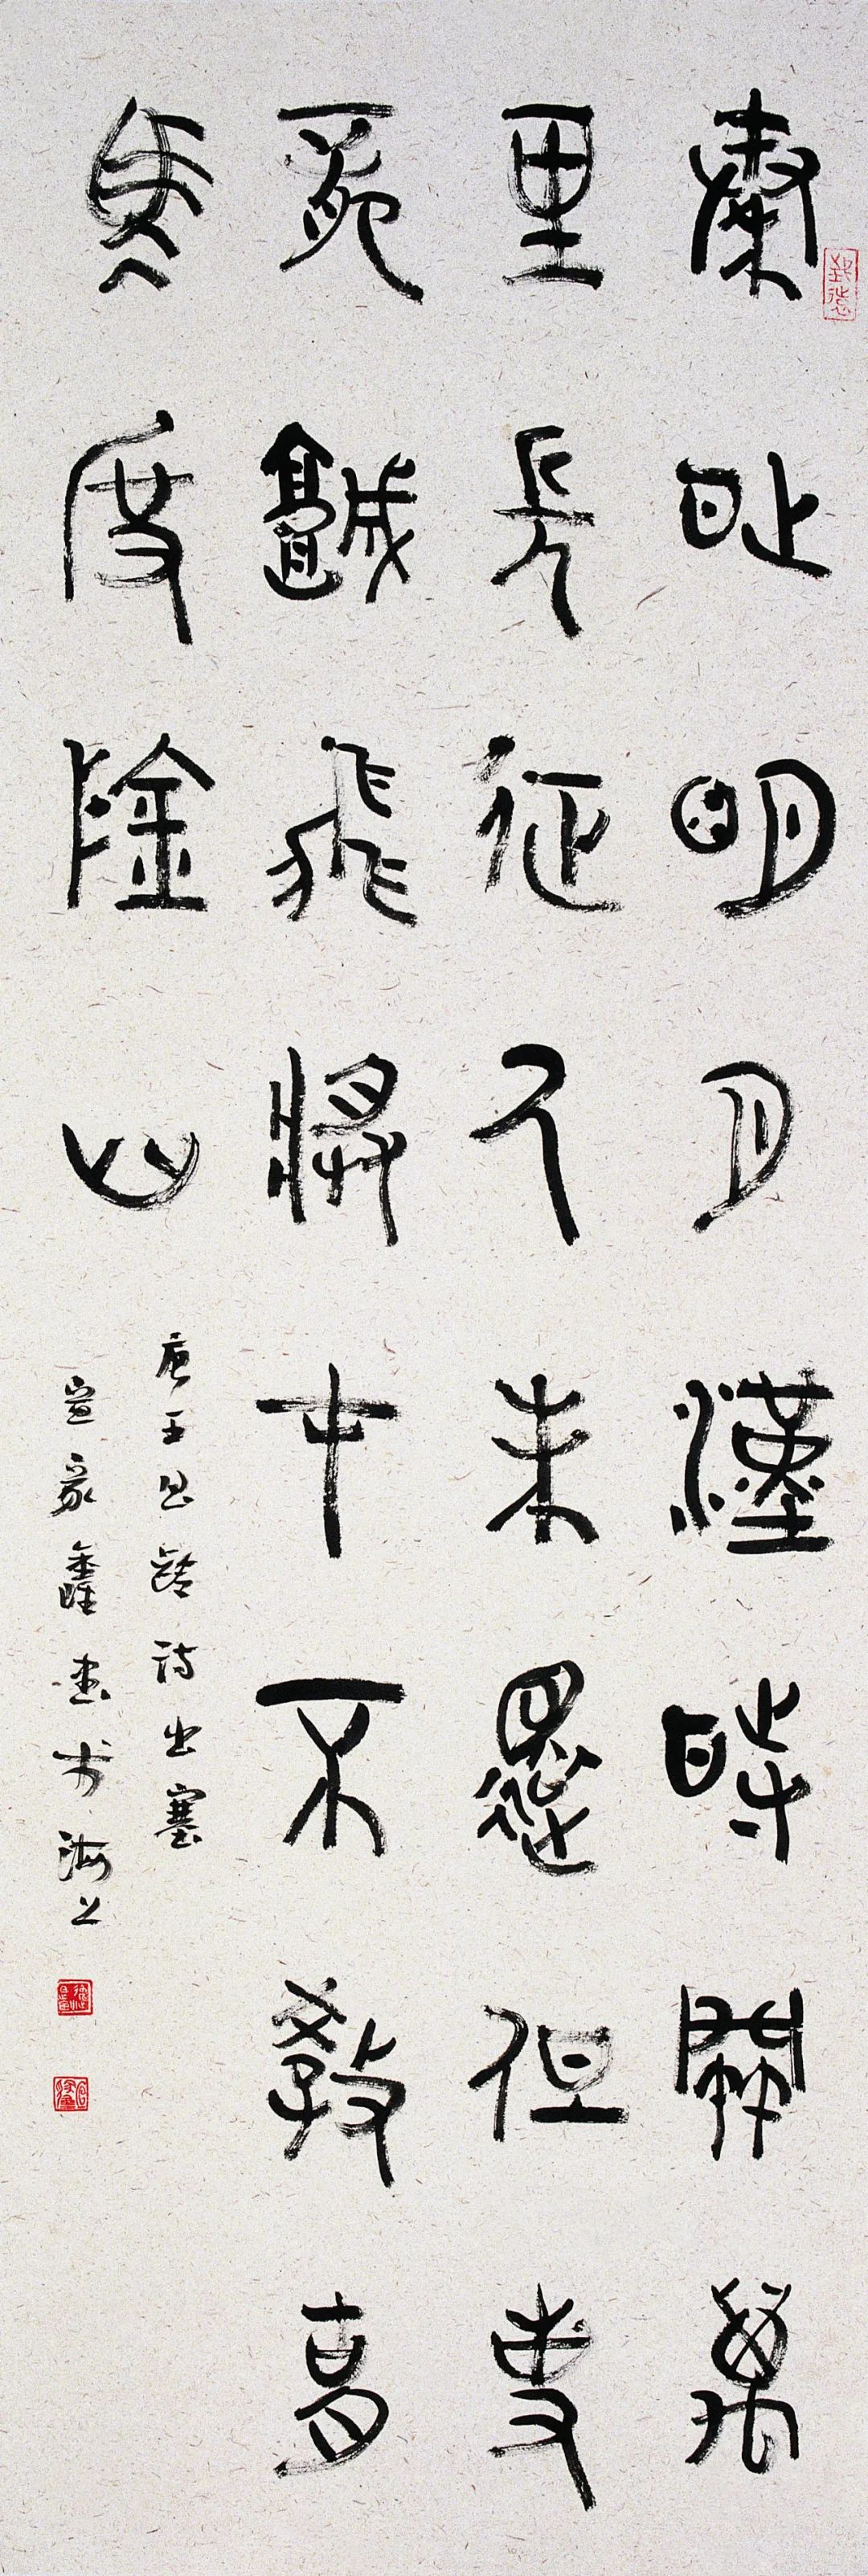 秦時明月漢時關萬
里長征人未還但使
龍城飛將在不教胡
馬度陰山
唐王昌齡詩出塞
宣家鑫書於海上